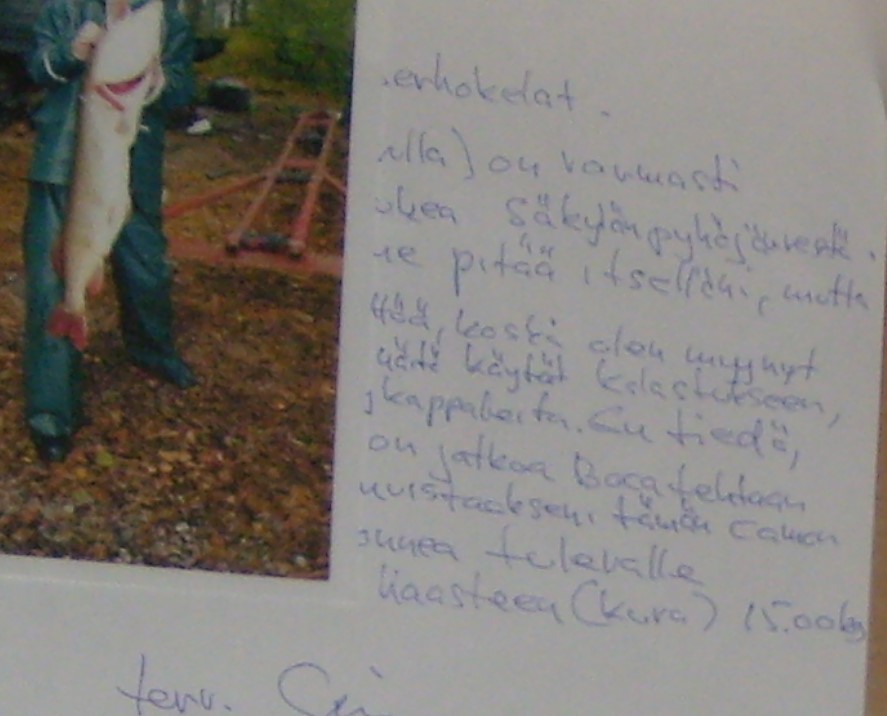 erhokelat.
lla) on varmasti
okea Säkylän pyhäjärvestä.
pitää itselläni, mutta
koska olen myynyt
näitä käytät kalastukseen,
kappaleita. En tiedä,
on jatkoa Boca tehtaan
muistaakseni tämän
onnea tulevalle
haasteen (kuva) 15.00kg
terv.